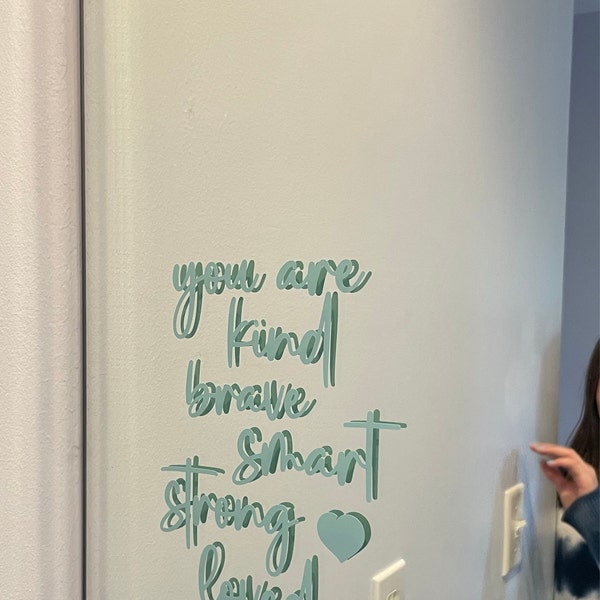 you are
kind
brave
smart
strong
loved